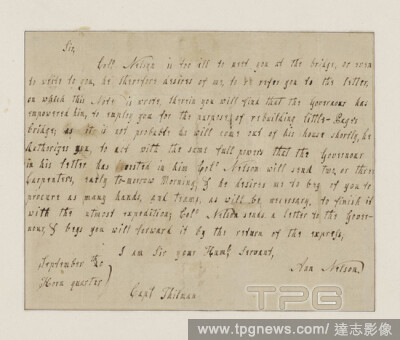 Sir,
Coll. Nelson is too ill to meet you at the bridge, or even
to write to you, he therefore desires of me, to refer you to the letter,
on which this Note is wrote, therein you will find that the Governour has
impowered him, to employ you for the purpose of rebuilding little-Page's
bridge; as it is not probable he will come out of his house shortly, he
Authorizes you, to act with the same full powers that the Governour
in his letter has invested in him Coll. Nelson will send two, or three
Carpenters, early to-morrow Morning, & he desires me to beg of you to
procure as many hands, and teams, as will be necessary, to finish it
with the utmost expedition; Coll. Nelson sends a letter to the Gover-
nour, & begs you will forward it by the return of the express,
I am Sir your Humb. Servant,
September the
Nelson
Horn quarter
Capt. Thilman
TPG
www.tpgnews.com / 達志影像